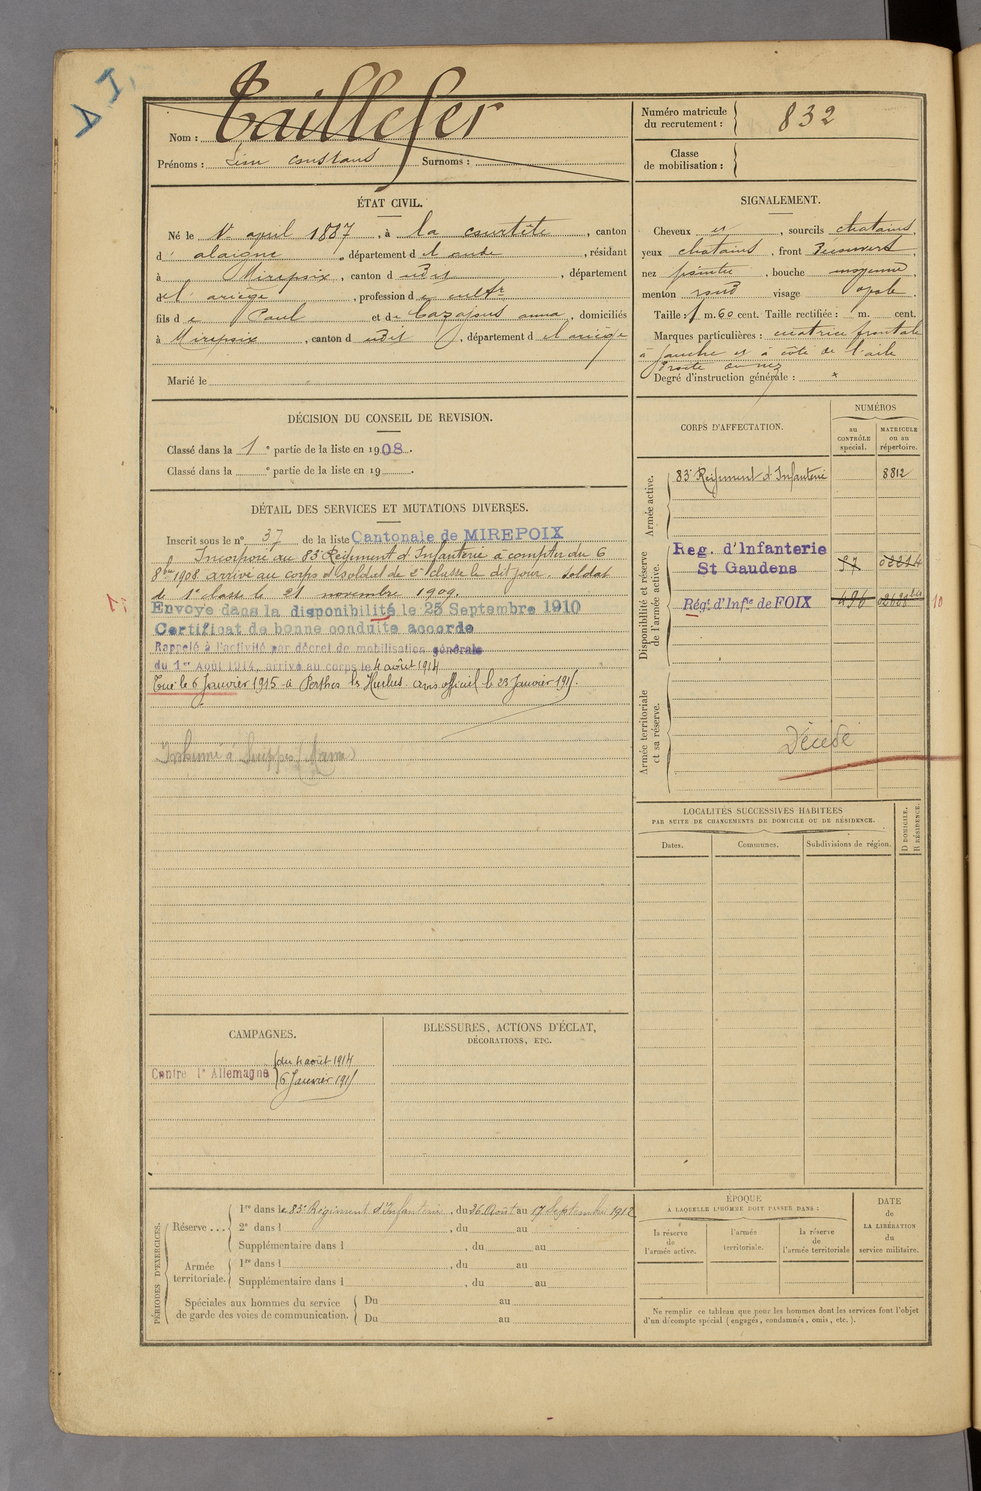 Nom : Taillefer
Prénoms : constans Surnoms :
Numéro matricule du recrutement : 832
Classe de mobilisation :
ÉTAT CIVIL.
Né le avril 1887, à la courtête, canton
d' alaigne, département d e l'aude, résidant
à Mirepoix, canton d udit, département
de l'ariège, profession de cultr
fils de Paul et de anna, domiciliés
à Mirepoix, canton d udit, département de l'ariège
Marié le
SIGNALEMENT.
Cheveux et, sourcils chatains,
yeux chatains, front Découvert,
nez pointu, bouche moyenne,
menton rond visage ovale.
Taille : 1 m. 60 cent. Taille rectifiée : 1 m. cent.
Marques particulières : cicatrice frontale
à gauche et à côté de l'aile
droite du nez
Degré d'instruction générale : x
DÉCISION DU CONSEIL DE REVISION.
Classé dans la 1e partie de la liste en 1908.
Classé dans la e partie de la liste en 19
DÉTAIL DES SERVICES ET MUTATIONS DIVERSES.
Inscrit sous le n° 37 de la liste Cantonale de MIREPOIX
Incorporé au 83e Régiment d'Infanterie à compter du 6
8bre 1908 arrivé au corps et soldat de 2e classe le dit jour. Soldat
de 1e classe le 21 novembre 1909.
Envoyé dans la disponibilité le 25 Septembre 1910
Certificat de bonne conduite accordé
Rappelé à l'activité par décret de mobilisation générale
du 1er Août 1914, arrivé au corps le 4 août 1914
Tué le 6 Janvier 1915 à Perthes les Hurlus. avis officiel le 23 Janvier 1915.
Inhumé à Suippes (Marne)
CORPS D'AFFECTATION.
NUMÉROS
au CONTRÔLE spécial.
MATRICULE ou au répertoire.
Armée active.
83e Régiment d'Infanterie 8812
Disponibilité et réserve de l'armée active.
Reg. d'Infanterie
St Gaudens
Régt. d'Infie de FOIX 496
Armée territoriale et sa réserve.
Décédé
LOCALITÉS SUCCESSIVES HABITÉES
PAR SUITE DE CHANGEMENTS DE DOMICILE OU DE RÉSIDENCE.
Dates. Communes. Subdivisions de région. D DOMICILE, R RÉSIDENCE.
CAMPAGNES.
Contre l'Allemagne
du 4 août 1914
6 Janvier 1915
BLESSURES, ACTIONS D'ÉCLAT,
DÉCORATIONS, ETC.
PÉRIODES D'EXERCICES.
Réserve . . .
1re dans le 83e Régiment d'Infanterie, du 26 Août au 17 Septembre 1912
2e dans l , du au
Supplémentaire dans l , du au
Armée territoriale.
1re dans l , du au
Supplémentaire dans l , du au
Spéciales aux hommes du service de garde des voies de communication.
Du au
Du au
ÉPOQUE
À LAQUELLE L'HOMME DOIT PASSER DANS :
la réserve de l'armée active.
l'armée territoriale.
la réserve de l'armée territoriale
DATE de LA LIBÉRATION du service militaire.
Ne remplir ce tableau que pour les hommes dont les services font l'objet
d'un décompte spécial (engagés, condamnés, omis, etc.).